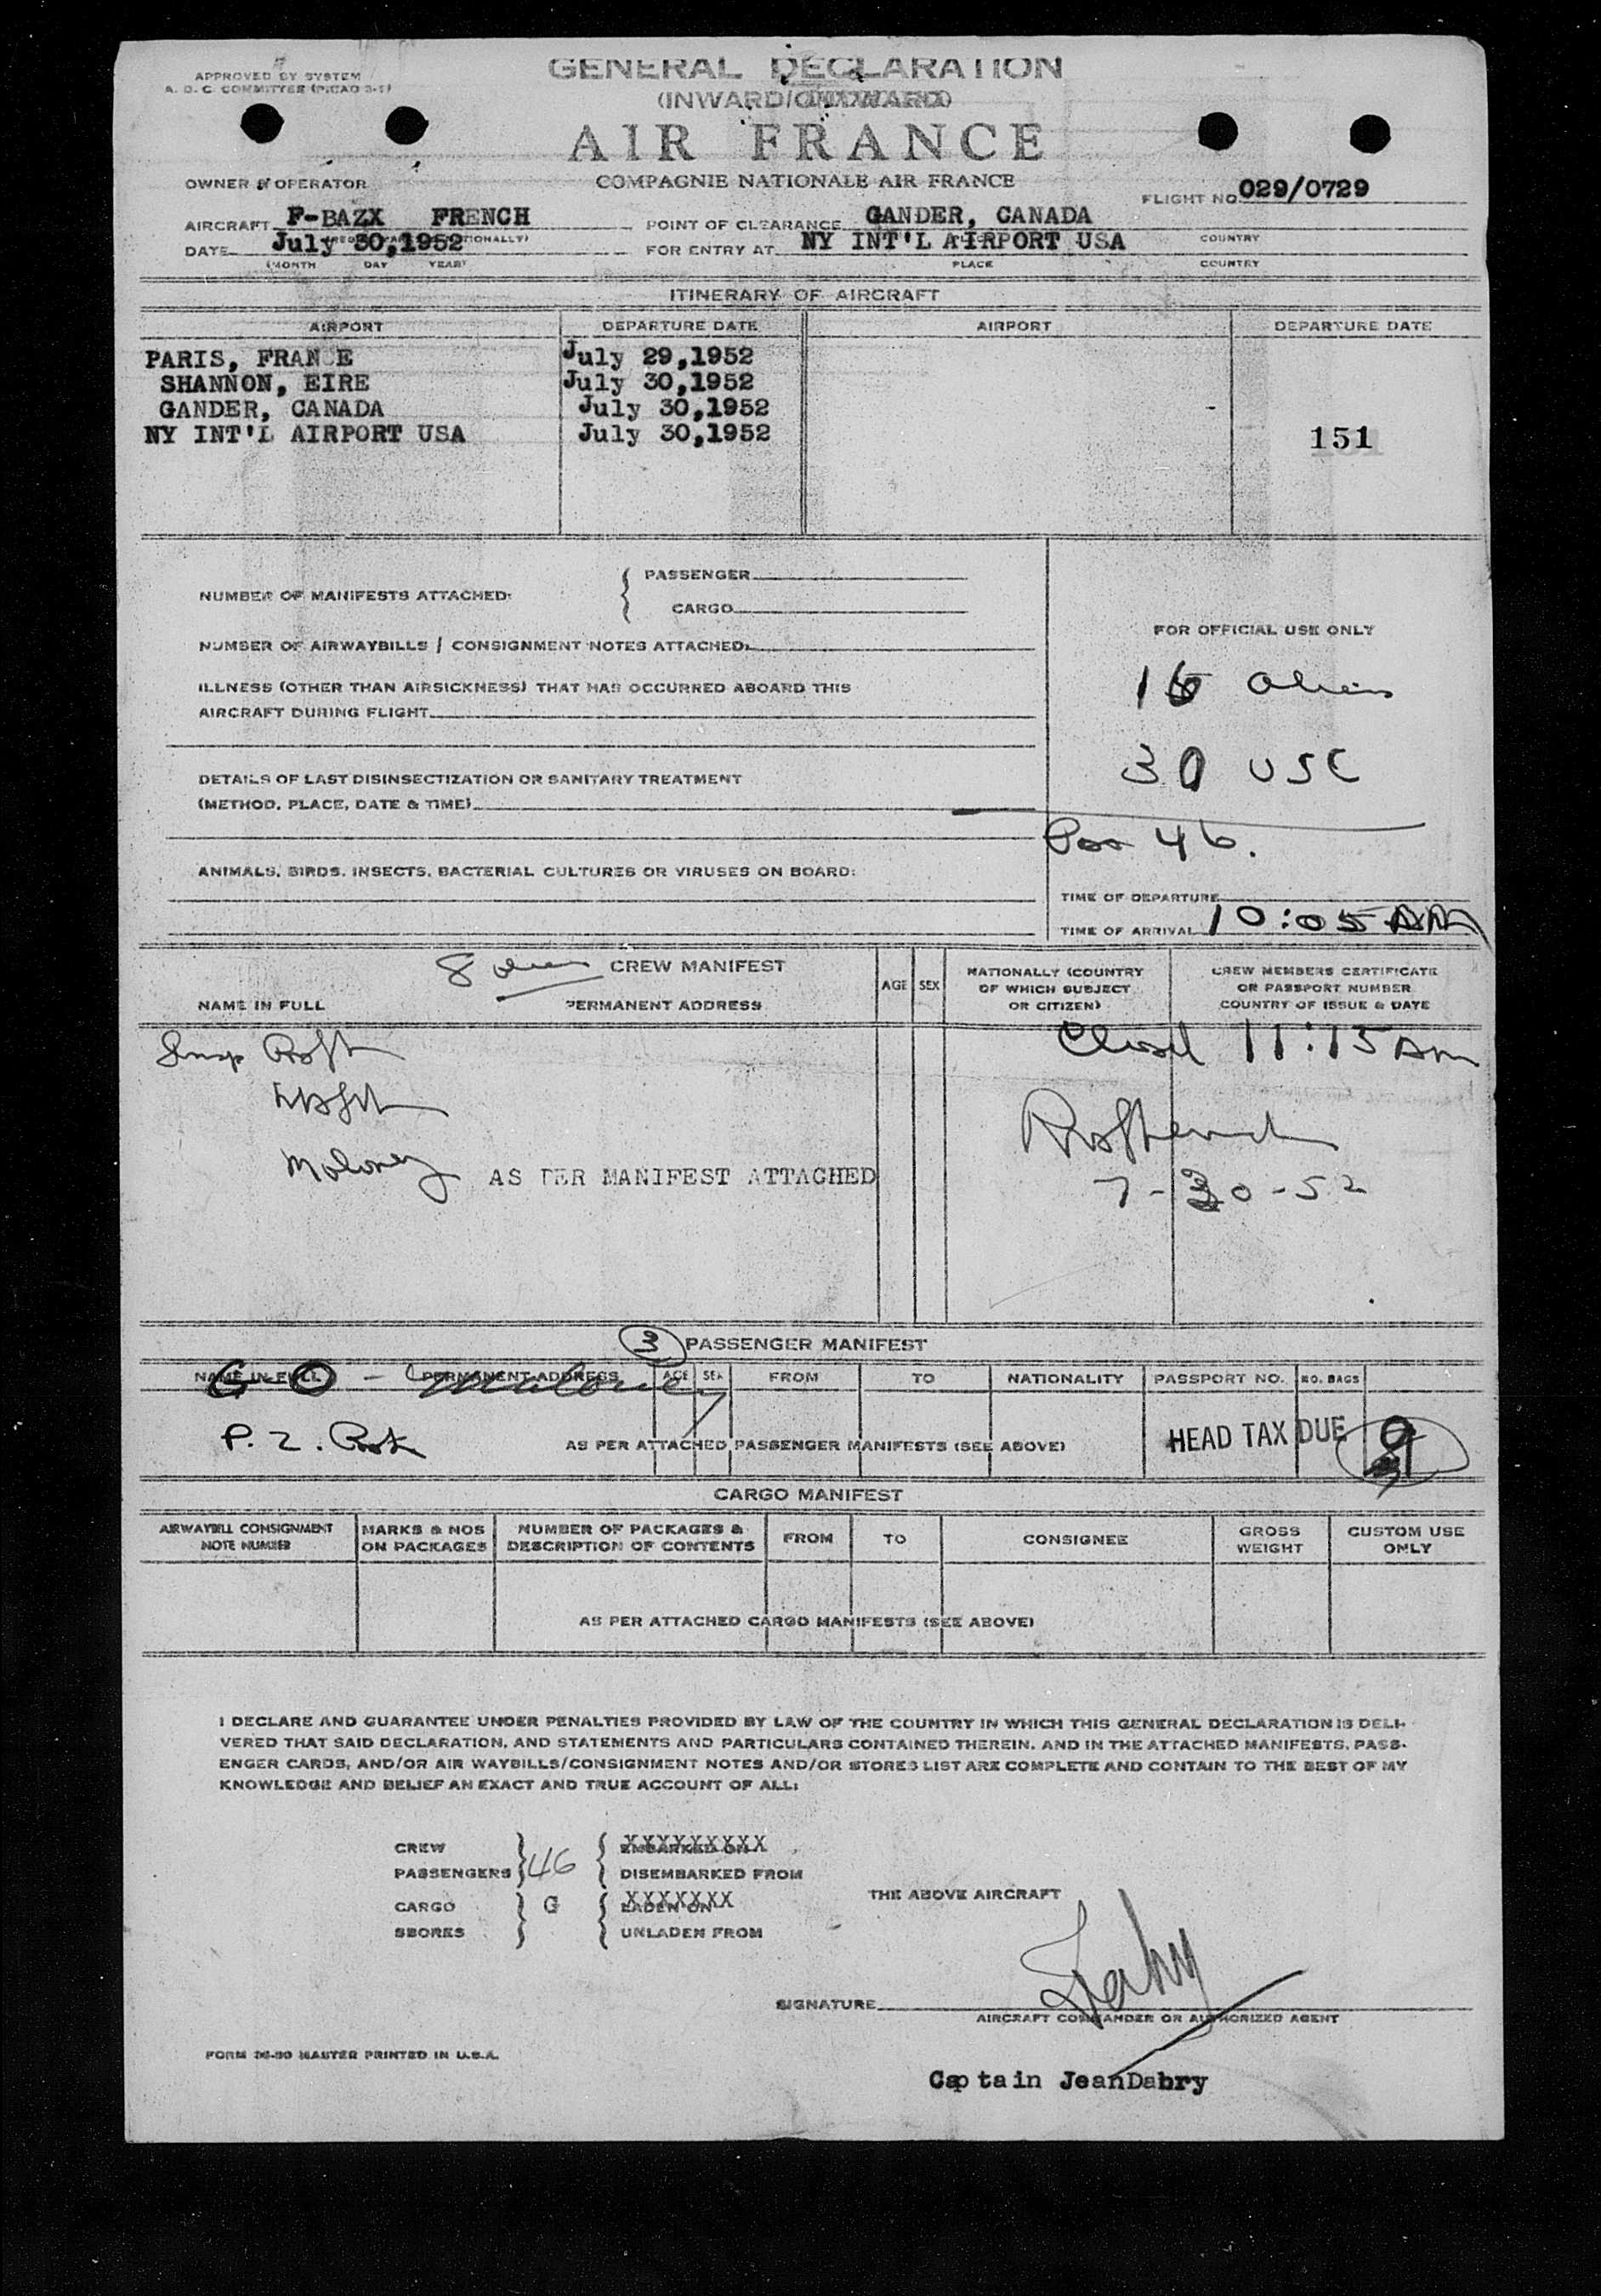 GENERAL DECLARATION
APPROVED BY SYSTEM
A. O. C. COMMITTEE (PICAO 3-1)
(INWARD/OUTWARD)
AIR FRANCE
COMPAGNIE NATIONALE AIR FRANCE
OWNER OPERATOR
FLIGHT NO. 029/0729
AIRCRAFT F-BAZX FRENCH
POINT OF CLEARANCE GANDER, CANADA
DATE July 30,1952
FOR ENTRY AT NY INT'L AIRPORT USA
COUNTRY
(MONTH DAY YEAR)
PLACE COUNTRY
ITINERARY OF AIRCRAFT
AIRPORT DEPARTURE DATE AIRPORT DEPARTURE DATE
PARIS, FRANCE July 29,1952
SHANNON, EIRE July 30,1952
GANDER, CANADA July 30,1952
NY INT'L AIRPORT USA July 30,1952
151
NUMBER OF MANIFESTS ATTACHED:
PASSENGER
CARGO
NUMBER OF AIRWAYBILLS / CONSIGNMENT NOTES ATTACHED:
ILLNESS (OTHER THAN AIRSICKNESS) THAT HAS OCCURRED ABOARD THIS
AIRCRAFT DURING FLIGHT
DETAILS OF LAST DISINSECTIZATION OR SANITARY TREATMENT
(METHOD, PLACE, DATE & TIME)
ANIMALS, BIRDS, INSECTS, BACTERIAL CULTURES OR VIRUSES ON BOARD:
FOR OFFICIAL USE ONLY
16 Aliens
30 USC
Pax 46.
TIME OF DEPARTURE
TIME OF ARRIVAL 10:05 AM
8 CREW MANIFEST
NAME IN FULL PERMANENT ADDRESS AGE SEX
NATIONALLY (COUNTRY
OF WHICH SUBJECT
OR CITIZEN)
CREW MEMBERS CERTIFICATE
OR PASSPORT NUMBER
COUNTRY OF ISSUE & DATE
Closed 11:15 AM
Insp
Moloney AS PER MANIFEST ATTACHED
7-30-52
3 PASSENGER MANIFEST
NAME IN FULL PERMANENT ADDRESS AGE SEX FROM TO NATIONALITY PASSPORT NO. NO. BAGS
G-O - Moloney
P. Z.
AS PER ATTACHED PASSENGER MANIFESTS (SEE ABOVE)
HEAD TAX DUE
CARGO MANIFEST
AIRWAYBILL CONSIGNMENT
NOTE NUMBER
MARKS & NOS
ON PACKAGES
NUMBER OF PACKAGES &
DESCRIPTION OF CONTENTS
FROM TO CONSIGNEE
GROSS
WEIGHT
CUSTOM USE
ONLY
AS PER ATTACHED CARGO MANIFESTS (SEE ABOVE)
I DECLARE AND GUARANTEE UNDER PENALTIES PROVIDED BY LAW OF THE COUNTRY IN WHICH THIS GENERAL DECLARATION IS DELI-
VERED THAT SAID DECLARATION, AND STATEMENTS AND PARTICULARS CONTAINED THEREIN, AND IN THE ATTACHED MANIFESTS, PASS-
ENGER CARDS, AND/OR AIR WAYBILLS/CONSIGNMENT NOTES AND/OR STORES LIST ARE COMPLETE AND CONTAIN TO THE BEST OF MY
KNOWLEDGE AND BELIEF AN EXACT AND TRUE ACCOUNT OF ALL:
CREW
PASSENGERS 46
EMBARKED ON
DISEMBARKED FROM
CARGO
SBORES G
LADEN ON
UNLADEN FROM
THE ABOVE AIRCRAFT
Dabry
SIGNATURE
AIRCRAFT COMMANDER OR AUTHORIZED AGENT
FORM 36-90 MASTER PRINTED IN U.S.A.
Captain JeanDabry